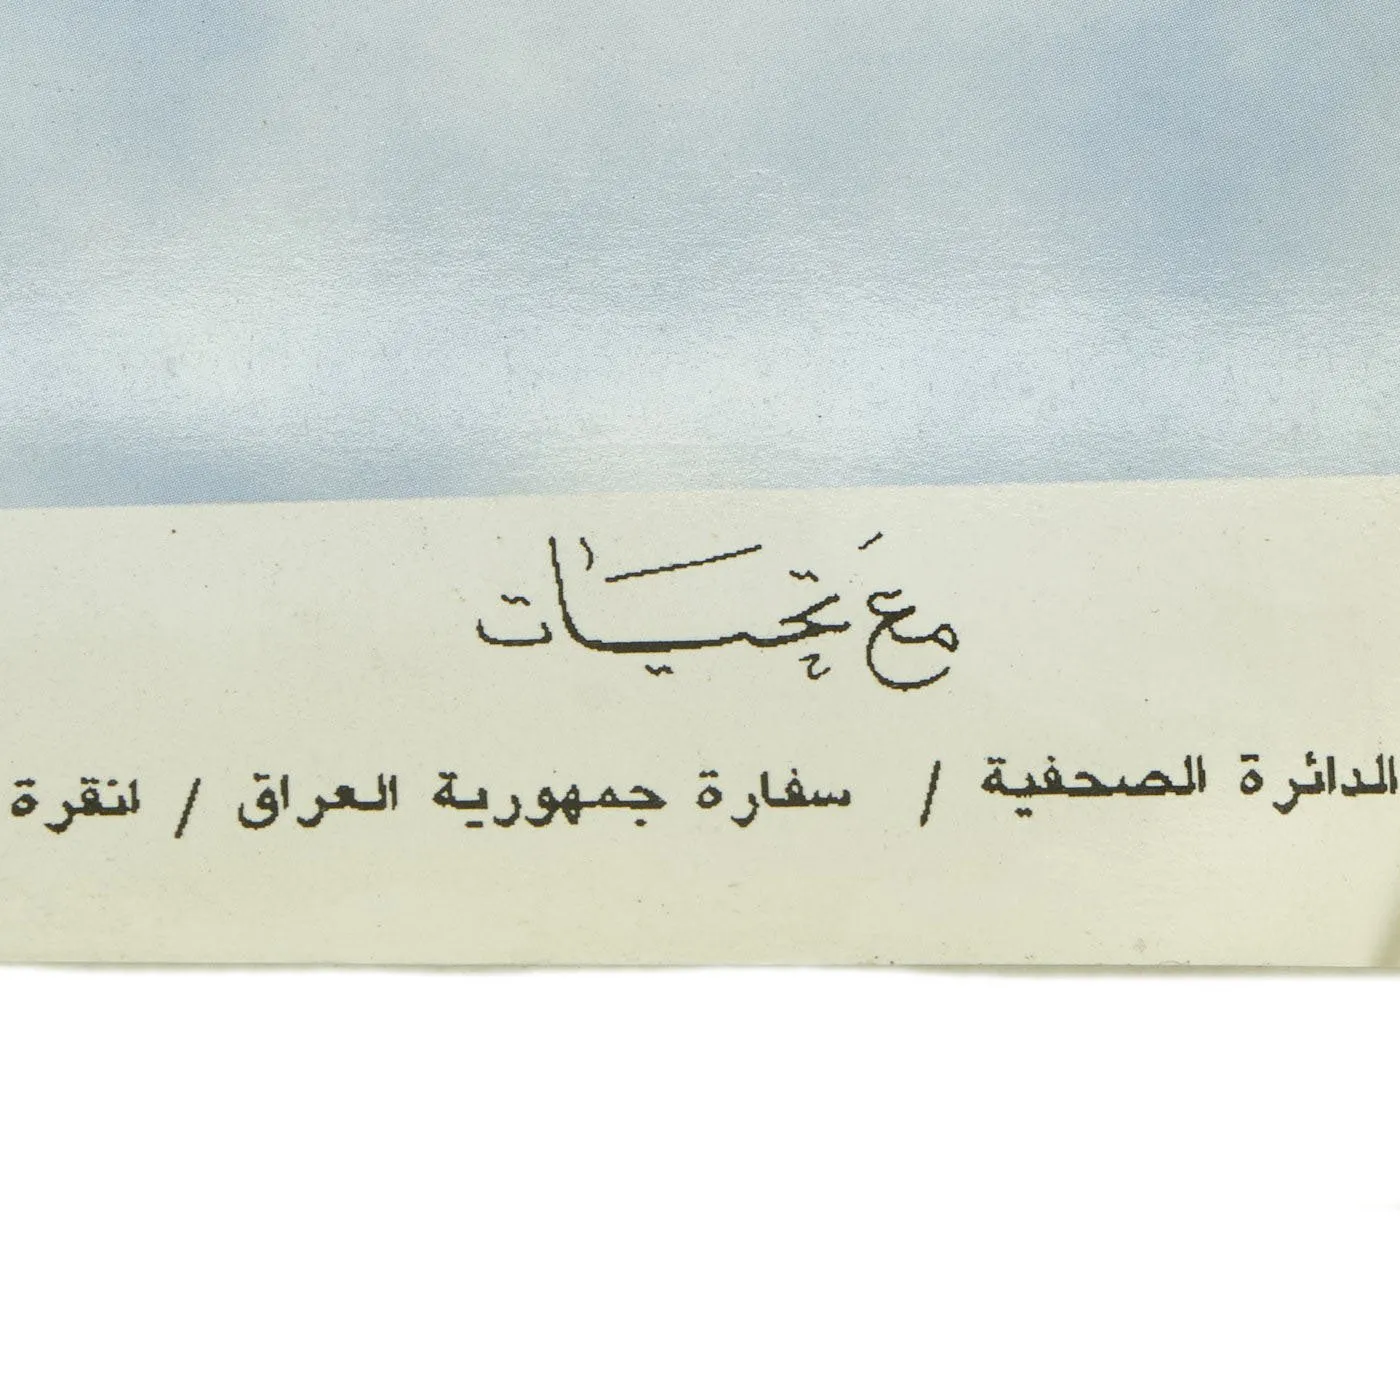 مع تحيات
الدائرة الصحفية / سفارة جمهورية العراق / انقرة